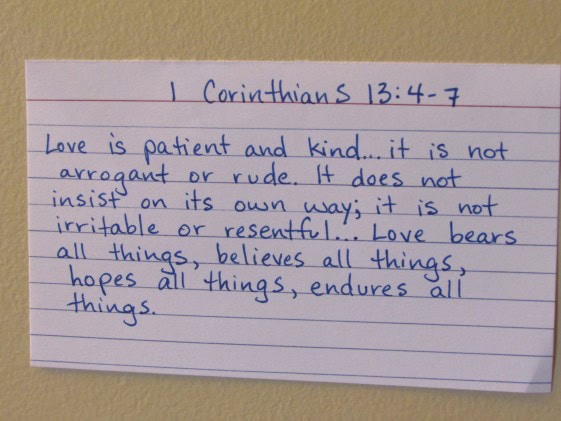 1 Corinthians 13:4-7
Love is patient and kind... it is not
arrogant or rude. It does not
insist on its own way; it is not
irritable or resentful... Love bears
all things, believes all things,
hopes all things, endures all
things.